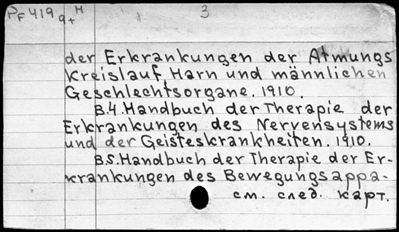 PF 419 H 3
9+
der Erkrankungen der Atmungs
Kreislauf, Harn und männlichen
Geschlechtsorgane. 1910.
B.4. Handbuch der Therapie der
Erkrankungen des Nervensystems
und der Geisteskrankheiten. 1910.
B.5. Handbuch der Therapie der Er-
krankungen des Bewegungsappa-
см. след. карт.